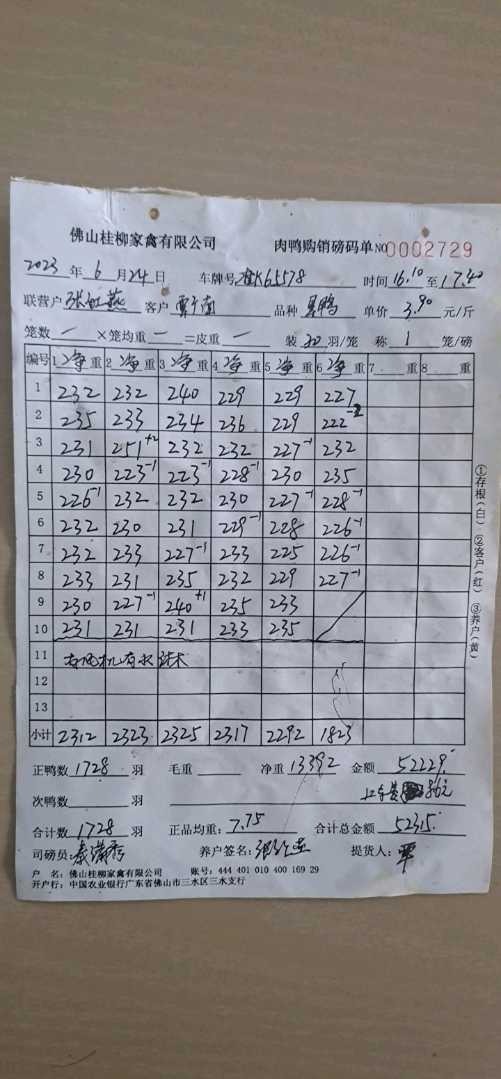 佛山桂柳家禽有限公司 肉鸭购销磅码单 NO 0002729
2023 年 6 月 24 日 车牌号 桂K65578 时间 16.10 至 17.40
联营户 张红燕 客户 品种 单价 3.90 元/斤
笼数 一 ×笼均重 一 =皮重 一 装 30 羽/笼 称 1 笼/磅
编号 1 净 重 2 净 重 3 净 重 4 净 重 5 净 重 6 净 重 7 重 8 重
1 232 232 240 229 229 227
2 235 233 234 236 229 222 -2
3 231 251 +2 232 232 227 -1 232
4 230 223 -1 223 -1 228 -1 230 235
5 226 -1 232 232 230 227 -1 228 -1
6 232 230 231 229 -1 228 226 -1
7 232 233 227 -1 233 225 226 -1
8 233 231 235 232 229 227 -1
9 230 227 -1 240 +1 235 233
10 231 231 231 233 235
11 有风机有水
12
13
小计 2312 2323 2325 2317 2292 1823
正鸭数 1728 羽 毛重 净重 13392 金额 52229.
次鸭数 羽 86元
合计数 1728 羽 正品均重: 7.75 合计总金额 52315.
司磅员: 养户签名: 提货人: 覃
户 名: 佛山桂柳家禽有限公司 账号: 444 401 010 400 169 29
开户行: 中国农业银行广东省佛山市三水区三水支行
①存根(白) ②客户(红) ③养户(黄)